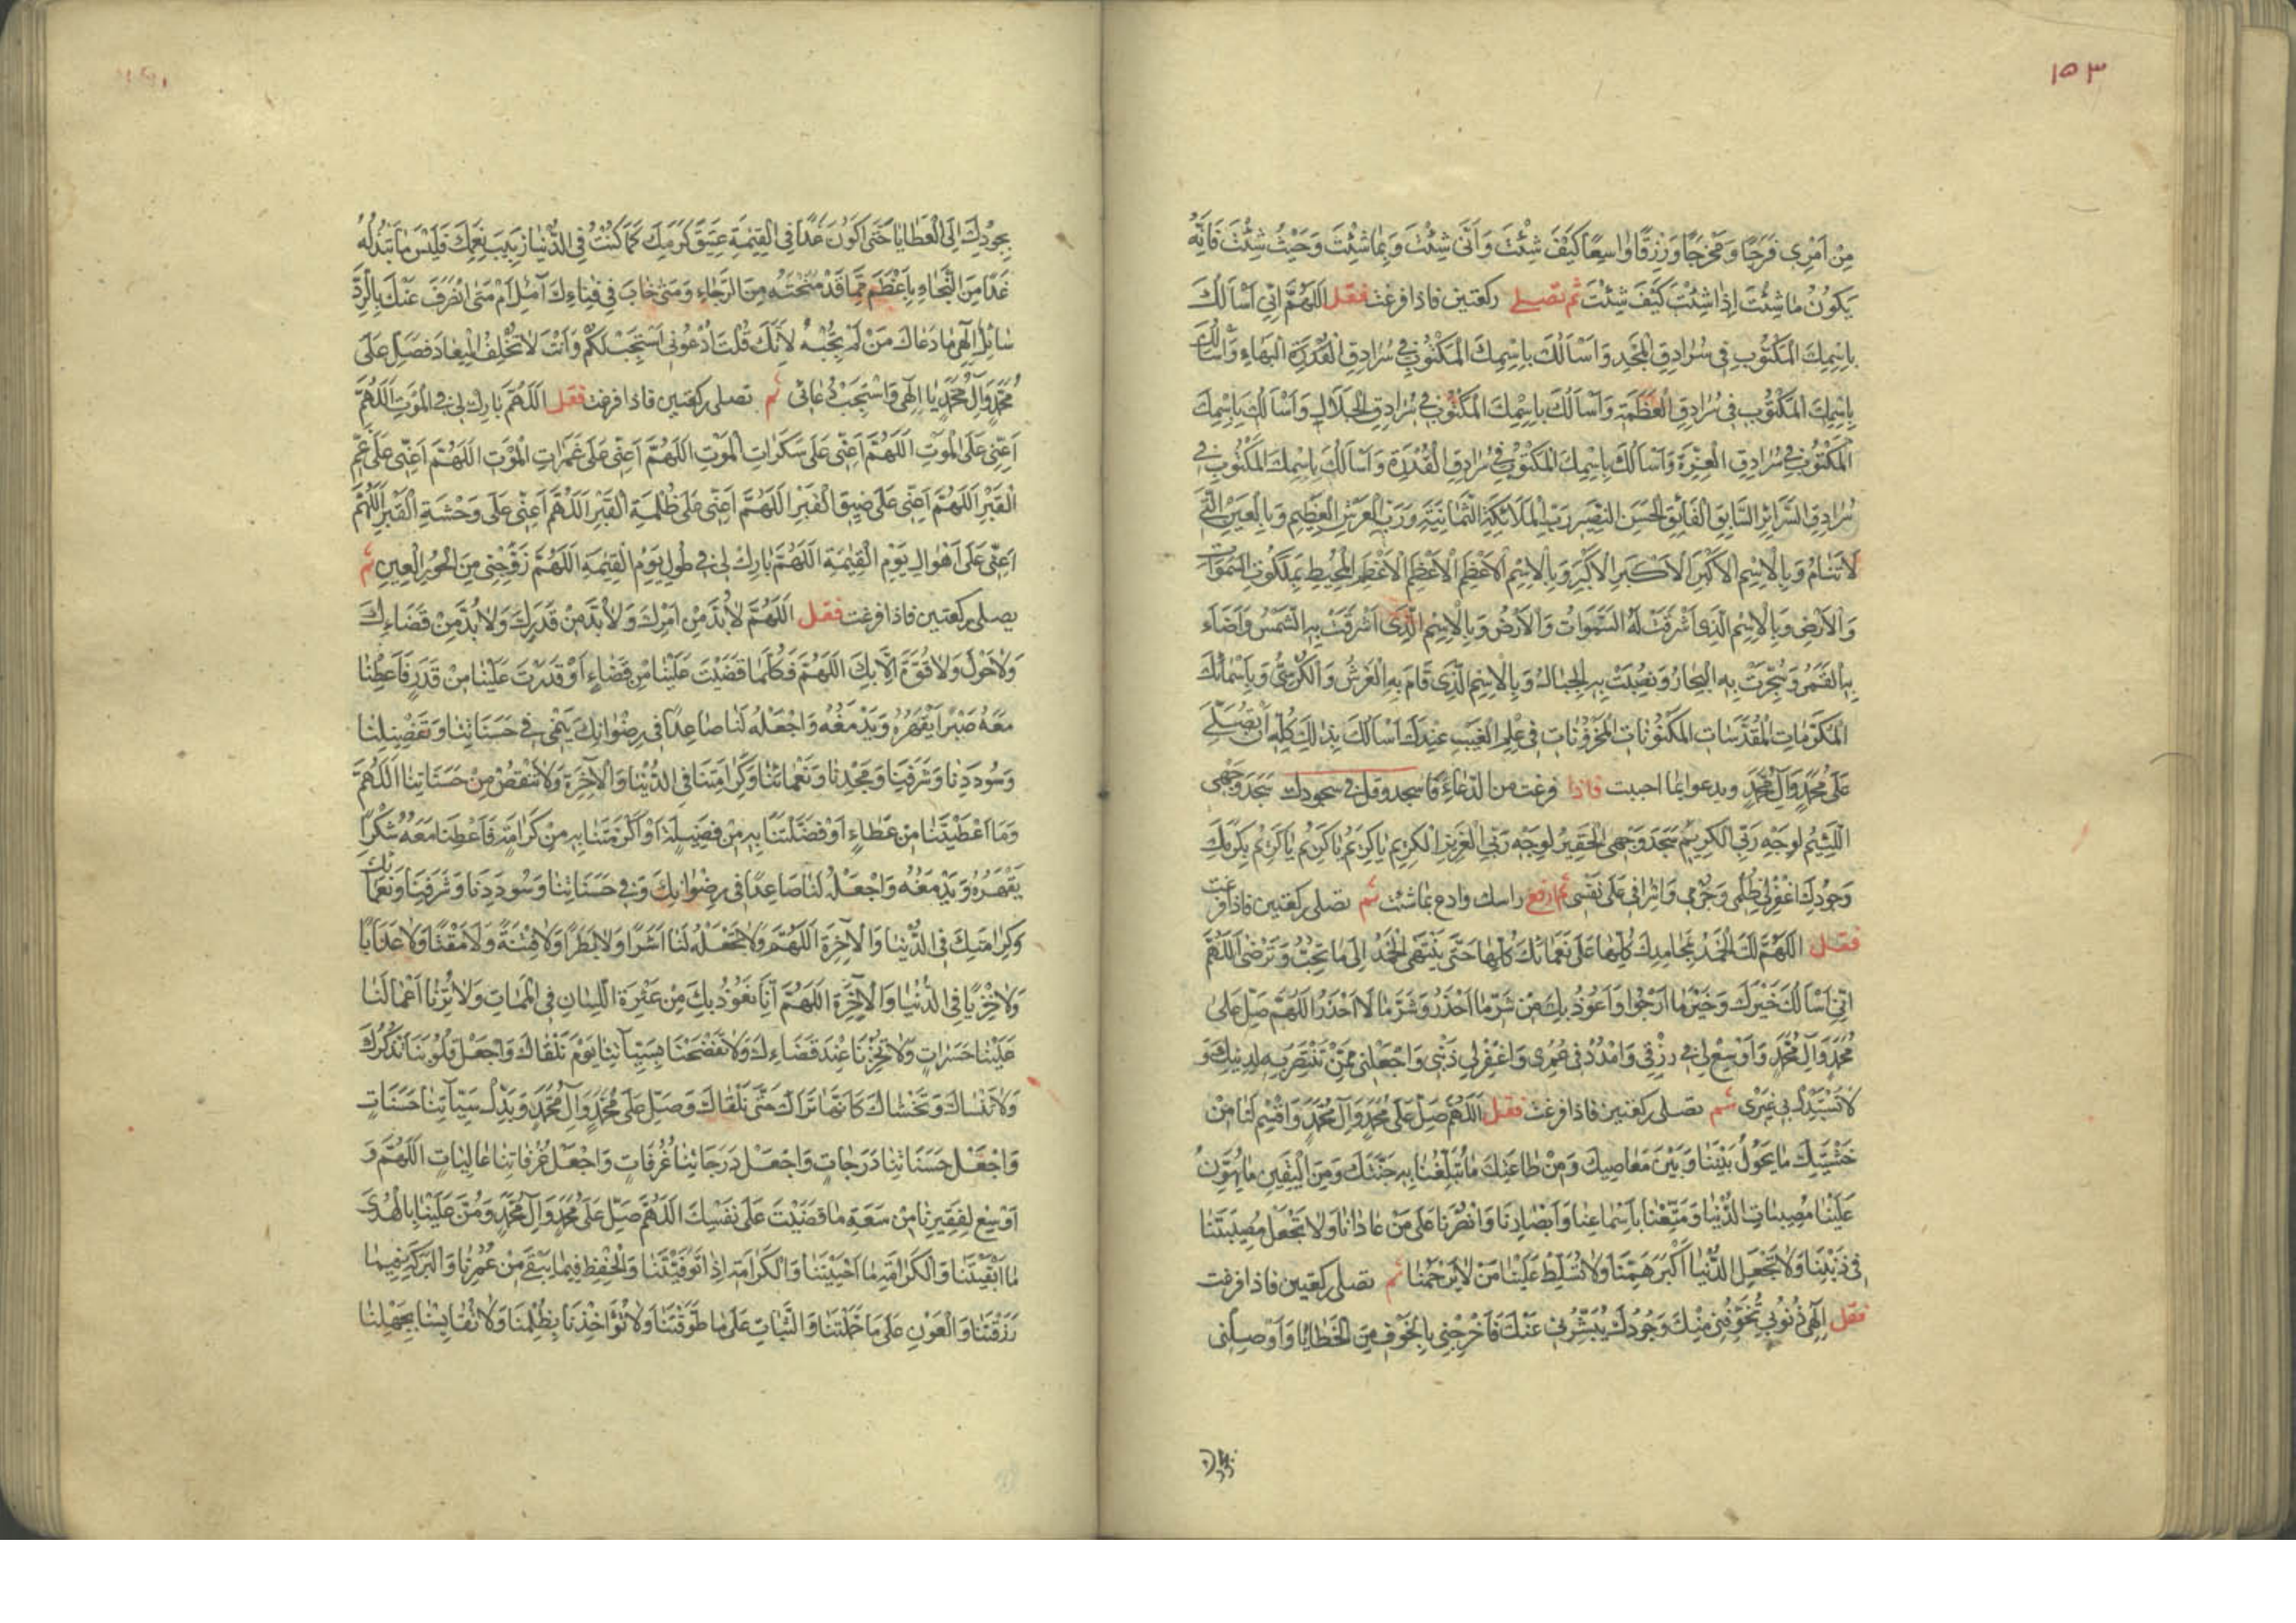 ١٥٣
مِنْ اَمْرِى فَرَجًا وَمَخْرَجًا وَرِزْقًا وٰاسِعًا كَيْفَ شِئْتَ وَاَنّٰى شِئْتَ وَبِمٰا شِئْتَ وَحَيْثُ شِئْتَ فَاِنَّهُ
يَكُونُ مٰا شِئْتَ اِذٰا شِئْتَ كَيْفَ شِئْتَ ثم تصلى ركعتين فاذا فرغت فقل اَللّٰهُمَّ اِنّى اَسْاَلُكَ
بِاسْمِكَ الْمَكْتُوبِ فى سُرٰادِقِ الْمَجْدِ وَاَسْاَلُكَ بِاسْمِكَ الْمَكْتُوبِ فى سُرٰادِقِ الْبَهٰاءِ وَاَسْاَلُكَ
بِاسْمِكَ الْمَكْتُوبِ فى سُرٰادِقِ الْعَظَمَةِ وَاَسْاَلُكَ بِاسْمِكَ الْمَكْتُوبِ فى سُرٰادِقِ الْجَلٰالِ وَاَسْاَلُكَ بِاسْمِكَ
الْمَكْتُوبِ فى سُرٰادِقِ الْعِزَّةِ وَاَسْاَلُكَ بِاسْمِكَ الْمَكْتُوبِ فى سُرٰادِقِ الْقُدْرَةِ وَاَسْاَلُكَ بِاسْمِكَ الْمَكْتُوبِ فى
سُرٰادِقِ السَّرٰائِرِ السّٰابِقِ الْفٰائِقِ الْحَسَنِ النَّضِيرِ رَبِّ الْمَلٰائِكَةِ الثَّمٰانِيَةِ وَرَبِّ الْعَرْشِ الْعَظِيمِ وَبِالْعَيْنِ الَّتى
لٰا تَنٰامُ وَبِالْاِسْمِ الْاَكْبَرِ الْاَكْبَرِ الْاَكْبَرِ وَبِالْاِسْمِ الْاَعْظَمِ الْاَعْظَمِ الْاَعْظَمِ الْمُحِيطِ بِمَلَكُوتِ السَّمٰوٰاتِ
وَالْاَرْضِ وَبِالْاِسْمِ الَّذى اَشْرَقَتْ لَهُ السَّمٰوٰاتُ وَالْاَرْضُ وَبِالْاِسْمِ الَّذى اَشْرَقَتْ بِهِ الشَّمْسُ وَاَضٰاءَ
بِهِ الْقَمَرُ وَسُجِّرَتْ بِهِ الْبِحٰارُ وَنُصِبَتْ بِهِ الْجِبٰالُ وَبِالْاِسْمِ الَّذى قٰامَ بِهِ الْعَرْشُ وَالْكُرْسِىُّ وَبِاَسْمٰائِكَ
الْمُكَرَّمٰاتِ الْمُقَدَّسٰاتِ الْمَكْنُونٰاتِ الْمَخْزُونٰاتِ فى عِلْمِ الْغَيْبِ عِنْدَكَ اَسْاَلُكَ بِذٰلِكَ كُلِّهِ اَنْ تُصَلِّىَ
عَلٰى مُحَمَّدٍ وَآلِ مُحَمَّدٍ ويدعو ايما احببت فاذا فرغت من الدعاء فاسجد وقل فى سجودك سَجَدَ وَجْهِى
اللَّئِيمُ لِوَجْهِ رَبِّى الْكَرِيمِ سَجَدَ وَجْهِى الْحَقِيرُ لِوَجْهِ رَبِّى الْعَزِيزِ الْكَرِيمِ يٰا كَرِيمُ يٰا كَرِيمُ يٰا كَرِيمُ بِكَرَمِكَ
وَجُودِكَ اغْفِرْ لى ظُلْمى وَجُرْمى وَاِسْرٰافى عَلٰى نَفْسى ثم ارفع راسك وادع بما شئت ثم تصلى ركعتين فاذا فرغت
فقل اَللّٰهُمَّ لَكَ الْحَمْدُ بِمَحٰامِدِكَ كُلِّهٰا عَلٰى نَعْمٰائِكَ كُلِّهٰا حَتّٰى يَنْتَهِىَ الْحَمْدُ اِلٰى مٰا تُحِبُّ وَتَرْضٰى اَللّٰهُمَّ
اِنّى اَسْاَلُكَ خَيْرَكَ وَخَيْرَ مٰا اَرْجُوا وَاَعُوذُ بِكَ مِنْ شَرِّ مٰا اَحْذَرُ وَشَرِّ مٰا لٰا اَحْذَرُ اَللّٰهُمَّ صَلِّ عَلٰى
مُحَمَّدٍ وَآلِ مُحَمَّدٍ وَاَوْسِعْ لى فى رِزْقى وَامْدُدْ لى فى عُمُرى وَاغْفِرْ لى ذَنْبى وَاجْعَلْنى مِمَّنْ تَنْتَصِرُ بِهِ لِدِينِكَ وَ
لٰا تَسْتَبْدِلْ بى غَيْرى ثم تصلى ركعتين فاذا فرغت فقل اَللّٰهُمَّ صَلِّ عَلٰى مُحَمَّدٍ وَآلِ مُحَمَّدٍ وَاقْسِمْ لَنٰا مِنْ
خَشْيَتِكَ مٰا يَحُولُ بَيْنَنٰا وَبَيْنَ مَعٰاصِيكَ وَمِنْ طٰاعَتِكَ مٰا تُبَلِّغُنٰا بِهِ جَنَّتَكَ وَمِنَ الْيَقِينِ مٰا يُهَوِّنُ
عَلَيْنٰا مُصِيبٰاتِ الدُّنْيٰا وَمَتِّعْنٰا بِاَسْمٰاعِنٰا وَاَبْصٰارِنٰا وَانْصُرْنٰا عَلٰى مَنْ عٰادٰانٰا وَلٰا تَجْعَلْ مُصِيبَتَنٰا
فى دِيْنِنٰا وَلٰا تَجْعَلِ الدُّنْيٰا اَكْبَرَ هَمِّنٰا وَلٰا تُسَلِّطْ عَلَيْنٰا مَنْ لٰا يَرْحَمُنٰا ثم تصلى ركعتين فاذا فرغت
فقل اِلٰهى ذُنُوبى تُخَوِّفُنى مِنْكَ وَجُودُكَ يُبَشِّرُنى عَنْكَ فَاَخْرِجْنى بِالْخَوْفِ مِنَ الْخَطٰايٰا وَاَوْصِلْنى
بجودك
بِجُودِكَ اِلَى الْعَطٰايٰا حَتّٰى اَكُونَ غَدًا فِى الْقِيٰمَةِ عَتِيقَ كَرَمِكَ كَمٰا كُنْتُ فِى الدُّنْيٰا رَبِيبَ نِعَمِكَ فَلَيْسَ مٰا تَبْذُلُهُ
غَدًا مِنَ النَّجٰاةِ بِاَعْظَمَ مِمّٰا قَدْ مَنَحْتَهُ مِنَ الرَّجٰاءِ وَمَتٰى خٰابَ فى فِنٰاءِكَ آمِلٌ اَمْ مَتٰى انْصَرَفَ عَنْكَ بِالرَّدِّ
سٰائِلٌ اِلٰهى مٰا دَعٰاكَ مَنْ لَمْ تُجِبْهُ لِاَنَّكَ قُلْتَ اُدْعُونى اَسْتَجِبْ لَكُمْ وَاَنْتَ لٰا تُخْلِفُ الْمِيعٰادَ فَصَلِّ عَلٰى
مُحَمَّدٍ وَآلِ مُحَمَّدٍ يٰا اِلٰهى وَاسْتَجِبْ دُعٰائى ثم تصلى ركعتين فاذا فرغت فقل اَللّٰهُمَّ بٰارِكْ لى فى الْمَوْتِ اَللّٰهُمَّ
اَعِنّى عَلَى الْمَوْتِ اَللّٰهُمَّ اَعِنّى عَلٰى سَكَرٰاتِ الْمَوْتِ اَللّٰهُمَّ اَعِنّى عَلٰى غَمَرٰاتِ الْمَوْتِ اَللّٰهُمَّ اَعِنّى عَلٰى غَمِّ
الْقَبْرِ اَللّٰهُمَّ اَعِنّى عَلٰى ضِيقِ الْقَبْرِ اَللّٰهُمَّ اَعِنّى عَلٰى ظُلْمَةِ الْقَبْرِ اَللّٰهُمَّ اَعِنّى عَلٰى وَحْشَةِ الْقَبْرِ اَللّٰهُمَّ
اَعِنّى عَلٰى اَهْوٰالِ يَوْمِ الْقِيٰمَةِ اَللّٰهُمَّ بٰارِكْ لى فى طُولِ يَوْمِ الْقِيٰمَةِ اَللّٰهُمَّ زَوِّجْنى مِنَ الْحُورِ الْعِينِ ثم
يصلى ركعتين فاذا فرغت فقل اَللّٰهُمَّ لٰا بُدَّ مِنْ اَمْرِكَ وَلٰا بُدَّ مِنْ قَدَرِكَ وَلٰا بُدَّ مِنْ قَضٰاءِكَ
وَلٰا حَوْلَ وَلٰا قُوَّةَ اِلّٰا بِكَ اَللّٰهُمَّ فَكُلَّمٰا قَضَيْتَ عَلَيْنٰا مِنْ قَضٰاءٍ اَوْ قَدَّرْتَ عَلَيْنٰا مِنْ قَدَرٍ فَاَعْطِنٰا
مَعَهُ صَبْرًا يَقْهَرُهُ وَيَدْمَغُهُ وَاجْعَلْهُ لَنٰا صٰاعِدًا فى رِضْوٰانِكَ يَنْمى فى حَسَنٰاتِنٰا وَتَفْضِيلِنٰا
وَسُودَدِنٰا وَشَرَفِنٰا وَمَجْدِنٰا وَنَعْمٰائِنٰا وَكَرٰامَتِنٰا فِى الدُّنْيٰا وَالْآخِرَةِ وَلٰا تَنْقُصْ مِنْ حَسَنٰاتِنٰا اَللّٰهُمَّ
وَمٰا اَعْطَيْتَنٰا مِنْ عَطٰاءٍ اَوْ فَضَّلْتَنٰا بِهِ مِنْ فَضِيلَةٍ اَوْ اَكْرَمْتَنٰا بِهِ مِنْ كَرٰامَةٍ فَاَعْطِنٰا مَعَهُ شُكْرًا
يَقْهَرُهُ وَيَدْمَغُهُ وَاجْعَلْهُ لَنٰا صٰاعِدًا فى رِضْوٰانِكَ وَفى حَسَنٰاتِنٰا وَسُودَدِنٰا وَشَرَفِنٰا وَنَعْمٰائِكَ
وَكَرٰامَتِكَ فِى الدُّنْيٰا وَالْآخِرَةِ اَللّٰهُمَّ وَلٰا تَجْعَلْهُ لَنٰا اَشَرًا وَلٰا بَطَرًا وَلٰا فِتْنَةً وَلٰا مَقْتًا وَلٰا عَذٰابًا
وَلٰا خِزْيًا فِى الدُّنْيٰا وَالْآخِرَةِ اَللّٰهُمَّ اِنّٰا نَعُوذُ بِكَ مِنْ عَثْرَةِ اللِّسٰانِ فى الْمَمٰاتِ وَلٰا تُرِنٰا اَعْمٰالَنٰا
عَلَيْنٰا حَسَرٰاتٍ وَلٰا تُخْزِنٰا عِنْدَ قَضٰاءِكَ وَلٰا تَفْضَحْنٰا بِسَيِّآتِنٰا يَوْمَ نَلْقٰاكَ وَاجْعَلْ قُلُوبَنٰا تَذْكُرُكَ
وَلٰا تَنْسٰاكَ وَتَخْشٰاكَ كَاَنَّهٰا تَرٰاكَ حَتّٰى نَلْقٰاكَ وَصَلِّ عَلٰى مُحَمَّدٍ وَآلِ مُحَمَّدٍ وَبَدِّلْ سَيِّآتِنٰا حَسَنٰاتٍ
وَاجْعَلْ حَسَنٰاتِنٰا دَرَجٰاتٍ وَاجْعَلْ دَرَجٰاتِنٰا غُرُفٰاتٍ وَاجْعَلْ غُرُفٰاتِنٰا عٰالِيٰاتٍ اَللّٰهُمَّ وَ
اَوْسِعْ لِفَقِيرِنٰا مِنْ سَعَةِ مٰا قَضَيْتَ عَلٰى نَفْسِكَ اَللّٰهُمَّ صَلِّ عَلٰى مُحَمَّدٍ وَآلِ مُحَمَّدٍ وَمُنَّ عَلَيْنٰا بِالْهُدٰى
مٰا اَبْقَيْتَنٰا وَالْكَرٰامَةِ مٰا اَحْيَيْتَنٰا وَالْكَرٰامَةِ اِذٰا تَوَفَّيْتَنٰا وَالْحِفْظِ فِيمٰا يَبْقٰى مِنْ عُمُرِنٰا وَالْبَرَكَةِ فِيمٰا
رَزَقْتَنٰا وَالْعَوْنِ عَلٰى مٰا حَمَّلْتَنٰا وَالثَّبٰاتِ عَلٰى مٰا طَوَّقْتَنٰا وَلٰا تُؤٰاخِذْنٰا بِظُلْمِنٰا وَلٰا تُقٰايِسْنٰا بِجَهْلِنٰا